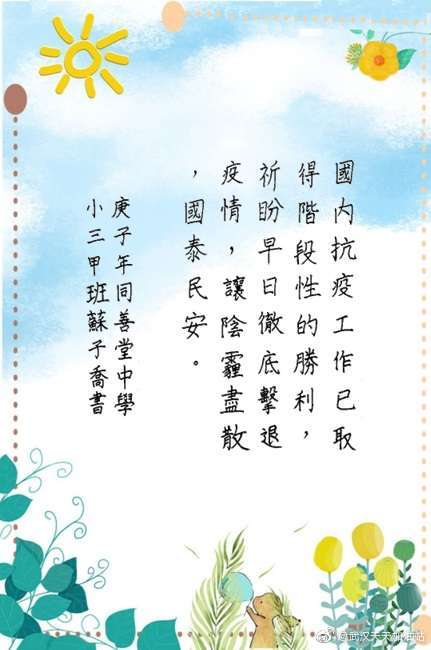 國內抗疫工作已取
得階段性的勝利，
祈盼早日徹底擊退
疫情，讓陰霾盡散
，國泰民安。
庚子年同善堂中學
小三甲班蘇子喬書